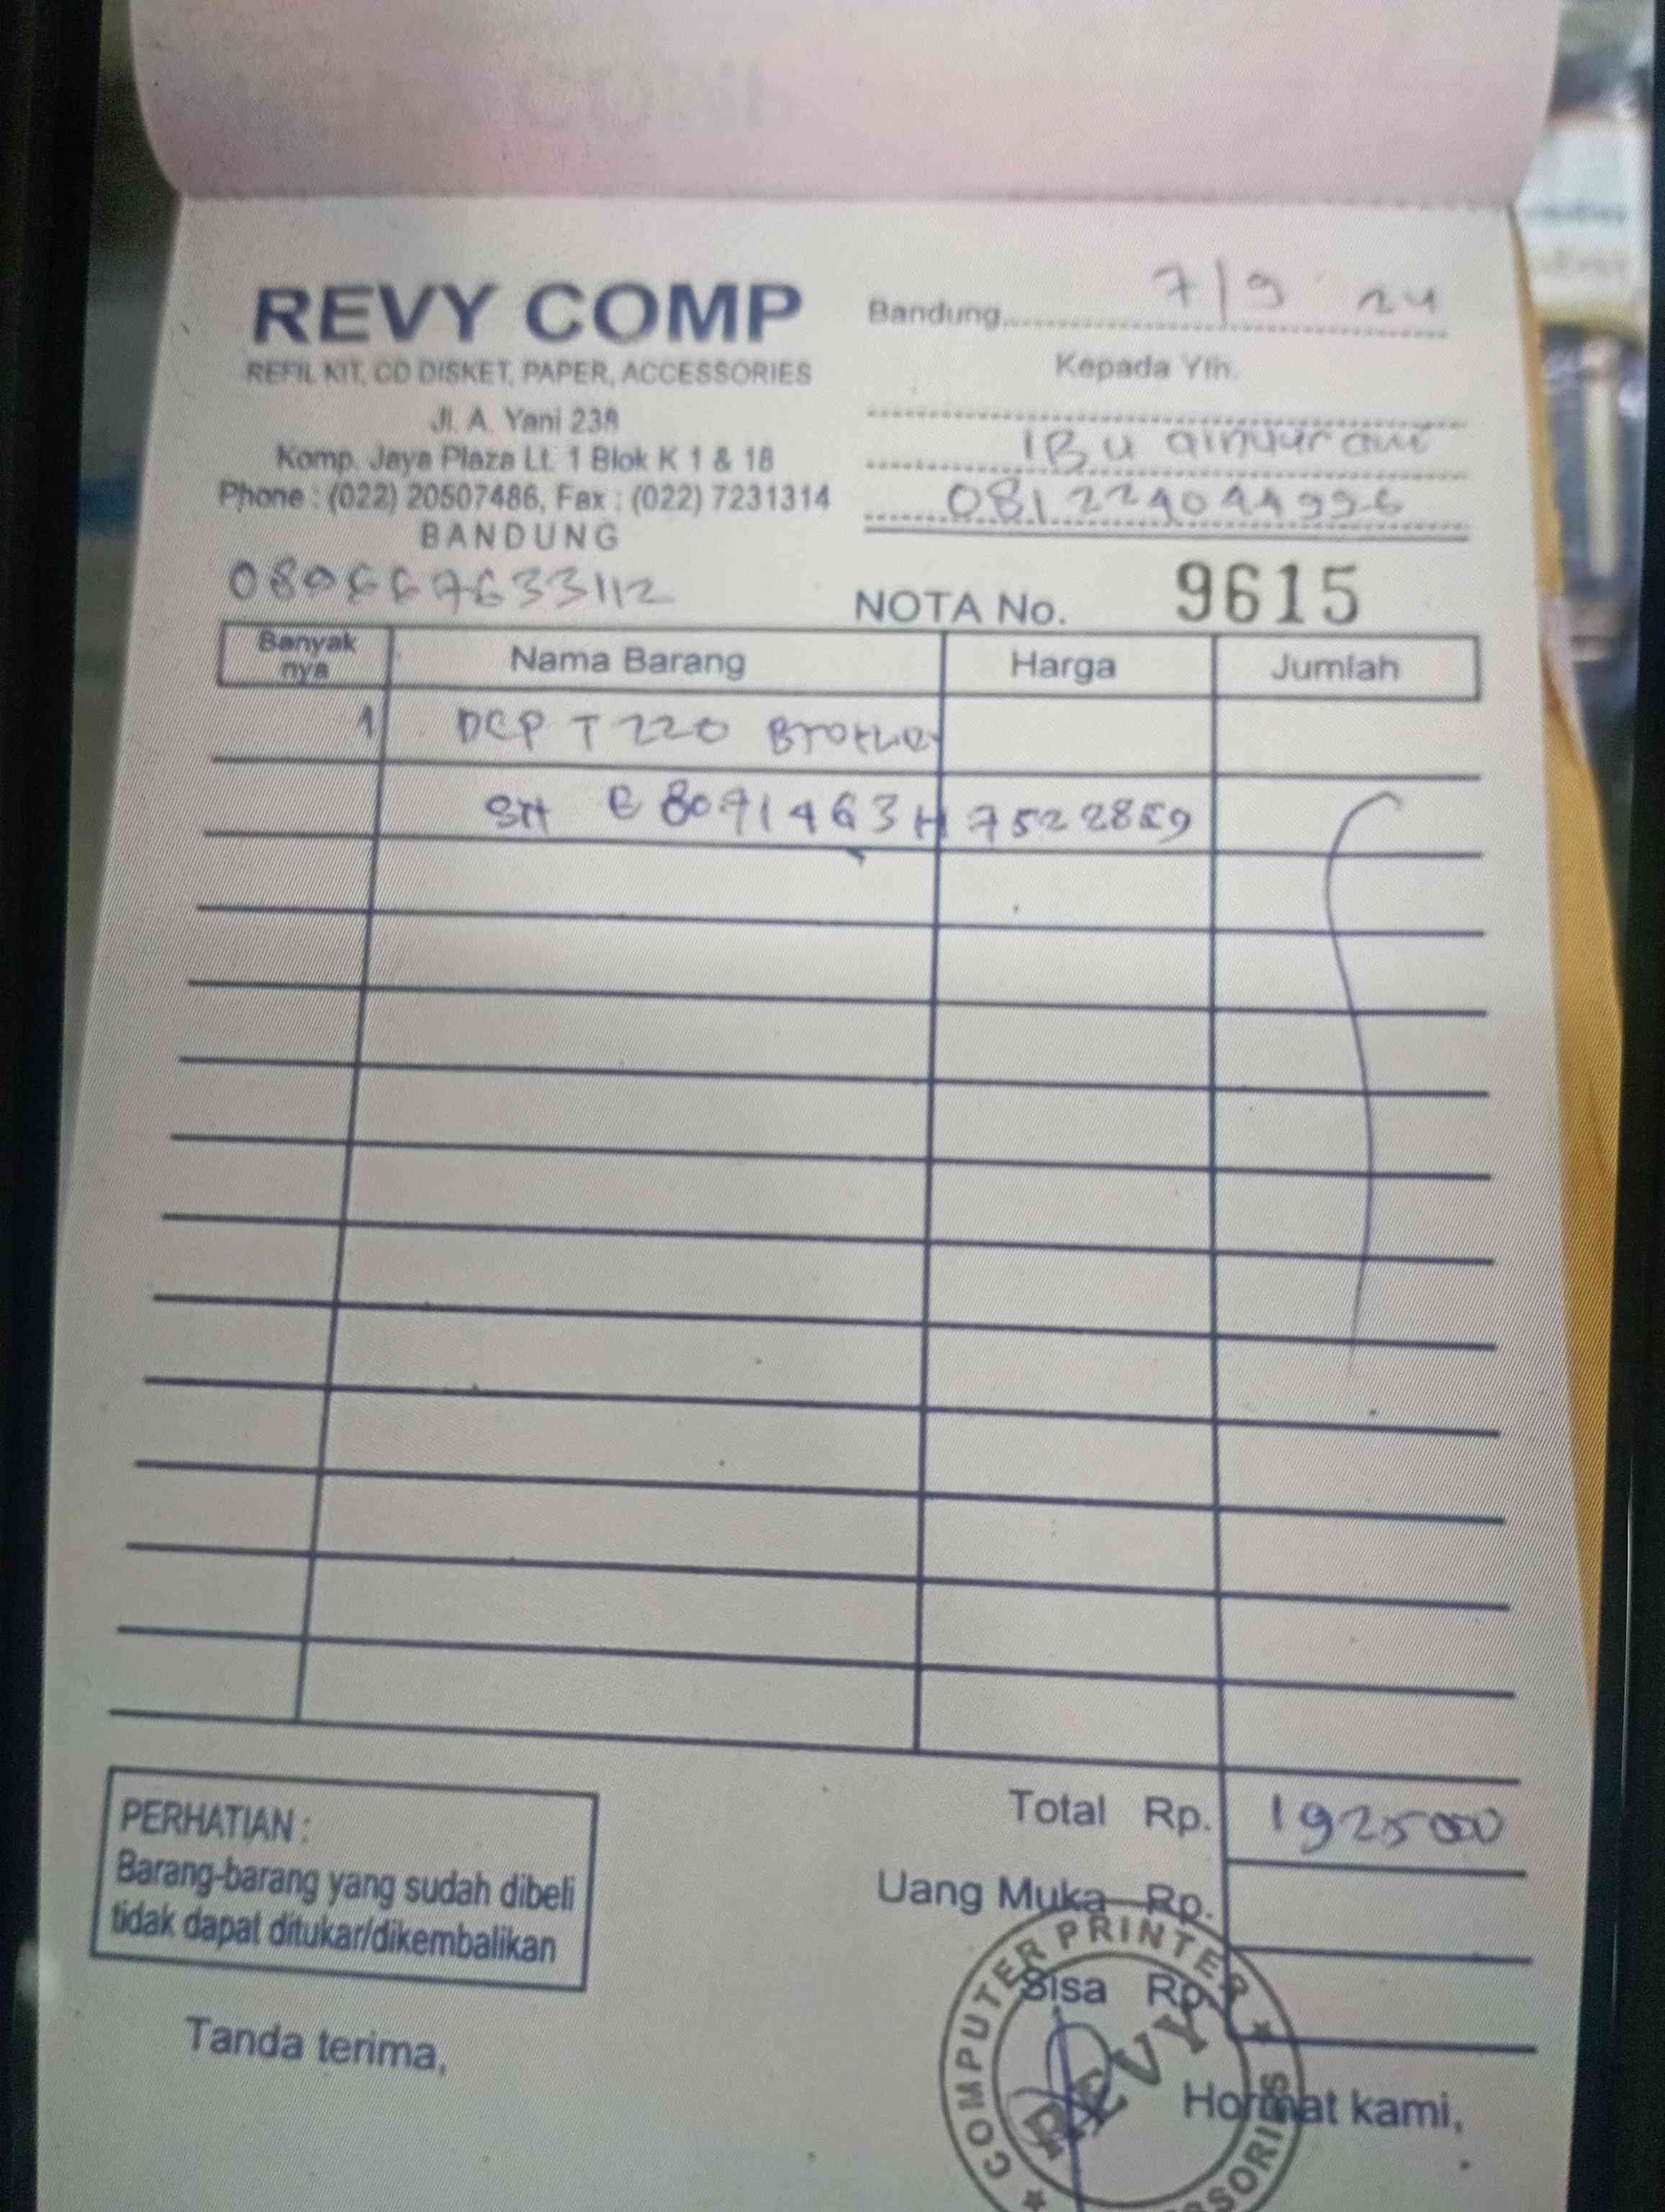 REVY COMP
REFIL KIT, CD DISKET, PAPER, ACCESSORIES
Jl. A. Yani 238
Komp. Jaya Plaza Lt. 1 Blok K 1 & 18
Phone : (022) 20507486, Fax : (022) 7231314
BANDUNG
Bandung 7/9 24
Kepada Yth.
IBu
NOTA No. 9615
Banyak nya Nama Barang Harga Jumlah
1 DCP T 220 Brother
SN E 8091463H7522859
Total Rp. 1925000
Uang Muka Rp.
Sisa Rp.
PERHATIAN :
Barang-barang yang sudah dibeli
tidak dapat ditukar/dikembalikan
Tanda terima,
Hormat kami,
COMPUTER PRINTER
REVY